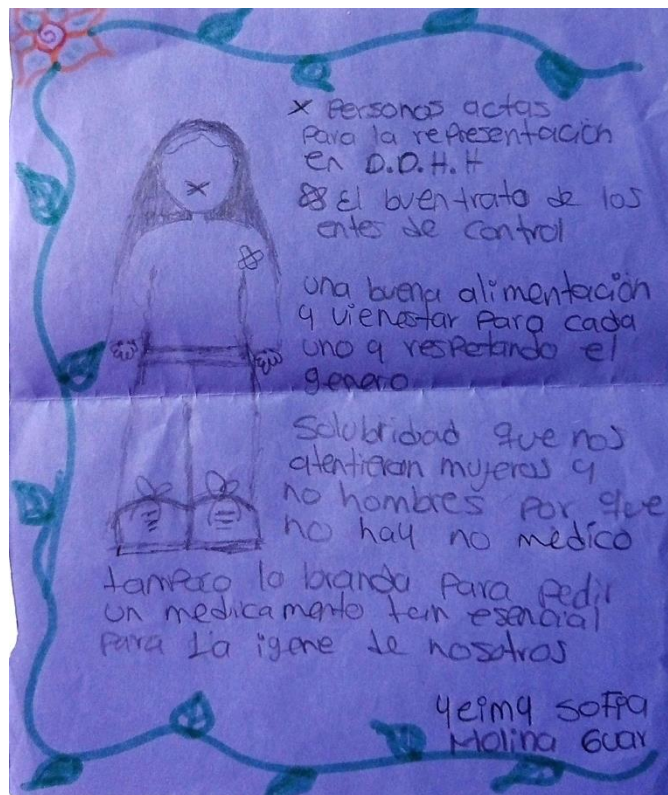 x personas actas
para la representación
en D.D.H.H
El buen trato de los
entes de control
una buena alimentación
y vienestar para cada
uno y respetando el
genero
Salubridad que nos
atentieran mujeras y
no hombres por que
no hay no médico
tampoco lo branda para pedir
un medicamento tan esencial
para La igene de nosotros
yeimy soFia
Molina Guar